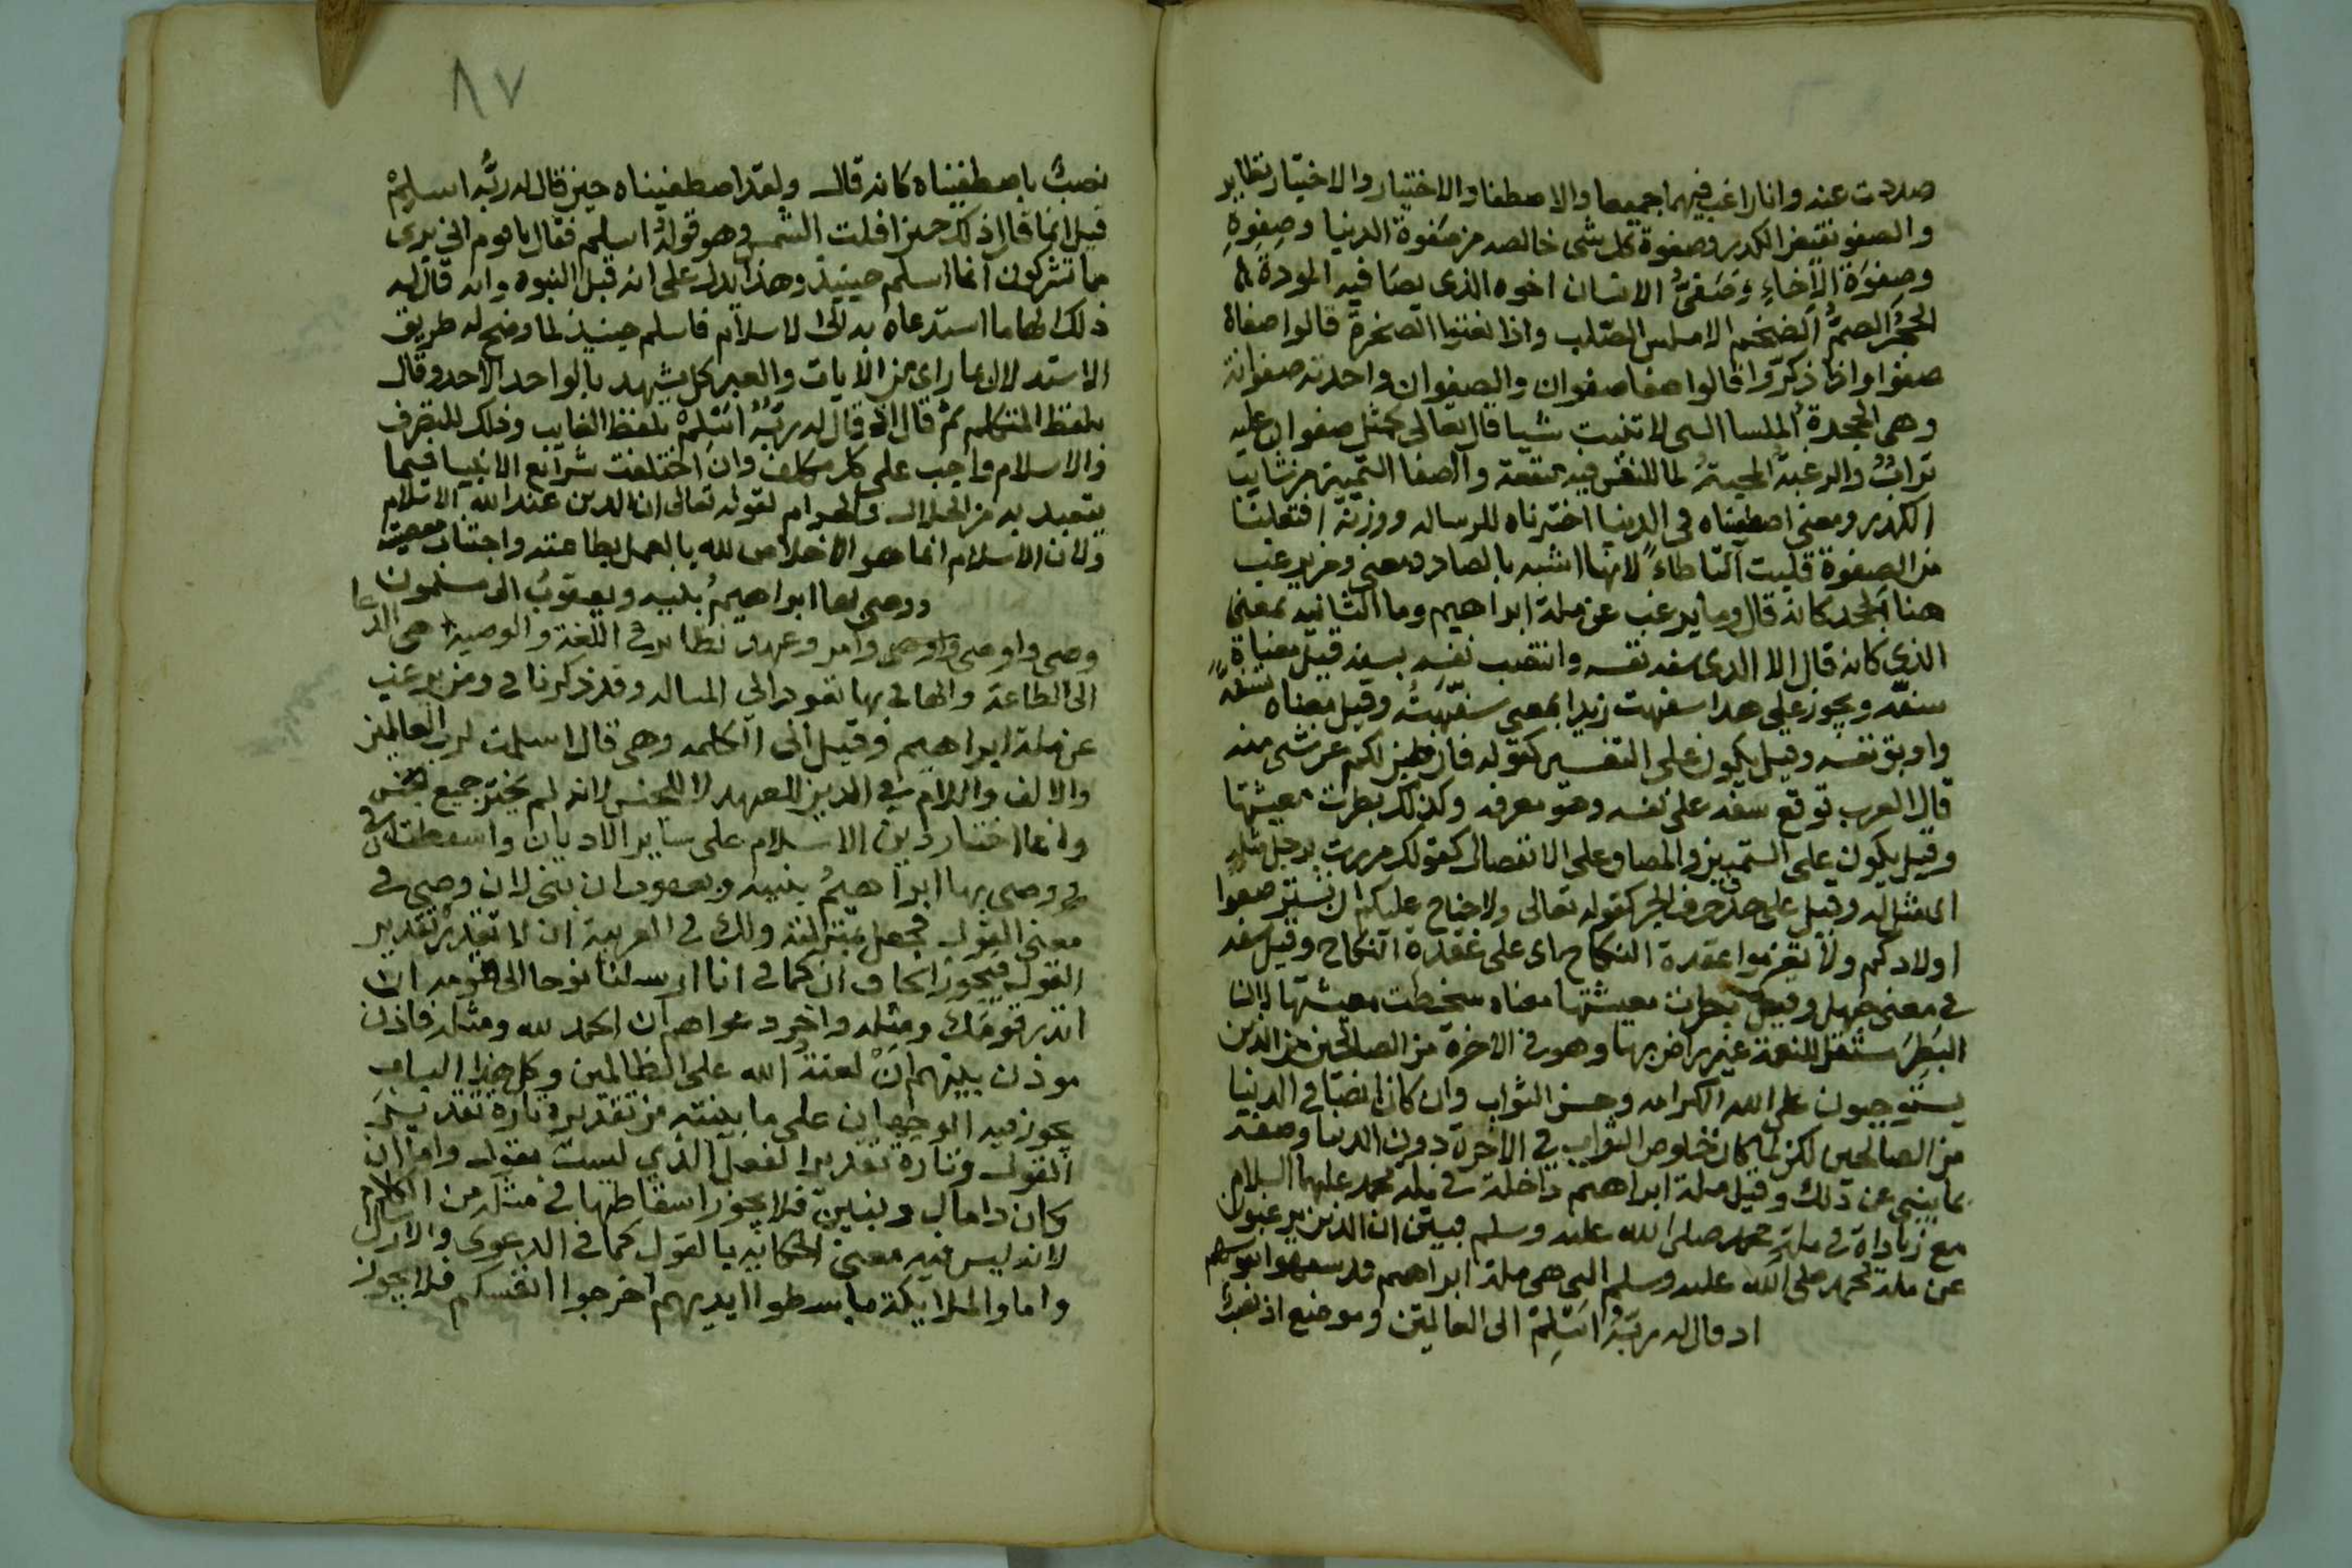 صددت عنه وانا راغب فيهما جميعا والاصطفا والاختيار والاختيار نظاير
والصفو نقيض الكدر وصفوة كل شى خالصه من صفوة الدنيا وصفوه
وصفوة الاخاء وصفى الانسان اخوه الذى يصافيه المودة
الحجر الصم الضخم الاملس الصلب واذا نعتوا الصخرة قالوا صفاة
صفوا واذا ذكروا قالوا صفا صفوان والصفوان واحدته صفوانة
وهى الملسا التى لا تنبت شيا قال تعالى كمثل صفوان عليه
تراب والرغبة المحبة لما للنفس فيه منفعة والصفا
الكدر ومعنى اصطفيناه فى الدنيا اخترناه للرساله ووزنه افتعلنا
من الصفوة قلبت التا طاء لانها اشبه بالصاد ومعنى ومن يرغب
هنا الجحد كانه قال وما يرغب عن ملة ابراهيم وما الثانيه بمعنى
الذي كانه قال الا الذى سفه نفسه وانتصب نفسه بسفه قيل معناة
سفه ويجوز على هذا سفهت زيدا بمعنى سفهت وقيل معناه
واوبق نفسه وقيل يكون على التفسير كقوله فان طبن لكم عن شى منه
قال العرب توقع سفه على نفسه وهو معرفه وكذلك بطرت معيشتها
وقيل يكون على التمييز والمضاف على الانفصال كقولك مررت برجل مثله
اى مثل له وقيل على حذف حرف الجر كقوله تعالى ولا جناح عليكم ان تسترضعوا
اولادكم ولا تعزموا عقدة النكاح اى على عقدة النكاح وقيل سفه
فى معنى جهل وقيل بطرت معيشتها معناه سخطت معيشتها لان
البطر مستقل للنعمة غير راض بها وهو فى الاخرة من الصالحين من الذين
يستوجبون على الله الكرامه وحسن الثواب وان كان ايضا فى الدنيا
من الصالحين لكن لما كان خلوص الثواب فى الاخرة دون الدنيا وصفه
بما ينبي عن ذلك وقيل ملة ابراهيم داخلة فى ملة محمد عليهما السلام
مع زياداة فى ملة محمد صلى الله عليه وسلم فبين ان الذين يرغبون
عن ملة محمد صلى الله عليه وسلم التى هى ملة ابراهيم قد سفهوا انفسهم
اذ قال له ربه اسلم الى العالمين وموضع اذ
٨٧
نصب باصطفيناه كانه قال ولقد اصطفيناه حين قال له ربه اسلم
قيل انما قال ذلك حين افلت الشمس وهو قوله اسلم فقال ياقوم انى برى
مما تشركون انما اسلم حينيذ وهذا يدل على انه قبل النبوه وانه قال له
ذلك الهاما استدعاه به الى الاسلام فاسلم حينيذ لما وضح له طريق
الاستدلال بما راى من الايات والعبر كل يشهد بالواحد الاحد وقال
بلفظ المتكلم ثم قال اذ قال له ربه اسلم بلفظ الغايب وذلك للتصرف
والاسلام واجب على كل مكلف وان اختلفت شرايع الانبيا فيما
يتعبد به من الحلال والحرام لقوله تعالى ان الدين عند الله الاسلام
ولان الاسلام انما هو الاخلاص لله بالعمل بطاعته واجتناب معصيته
ووصى بها ابراهيم بنيه ويعقوب الى مسلمون
وصى واوصى وامر وعهد نظاير فى اللغة والوصية هى الدعا
الى الطاعة والها فى بها تعود الى الملة وقد ذكرنا فى ومن يرغب
عن ملة ابراهيم وقيل الى الكلمه وهى قال اسلمت لرب العالمين
والالف واللام فى الدين للعهد لا للجنس لانه لم يختر جميع
وانما اختار دين الاسلام على ساير الاديان واسقطت
فى ووصى بها ابراهيم بنيه ويعقوب ان يابنى لان وصى فى
معنى القول فجعل بمنزلته ولك فى العربية ان لا تقدر تقدير
القول فيجوز الحاق ان كما فى انا ارسلنا نوحا الى قومه ان
انذر قومك ومثله واخر دعواهم ان الحمد لله ومثله فاذن
موذن بينهم ان لعنة الله على الظالمين وكل هذا الباب
يجوز فيه الوجهان على ما بينته من تقديره تارة تقدير
القول وتارة تقدير الفعل الذي ليست بقول واما ان
كان فلا يجوز اسقاطها فى مثله من الكلام
لانه ليس فيه معنى الحكايه بالقول كما فى الدعوى والارسال
واما والملايكة باسطوا ايديهم اخرجوا انفسكم فلا يجوز